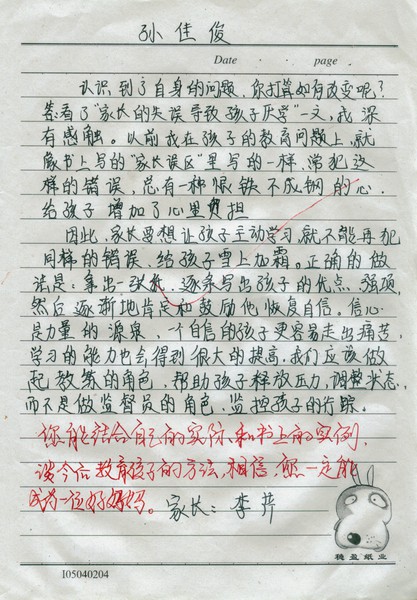 孙佳俊
Date · · page.
认识到了自身的问题，你打算如何改变呢？
答看了“家长的失误导致孩子厌学”一文，我深
有感触。以前我在孩子的教育问题上，就
像书上写的“家长误区”里写的一样，常犯这
样的错误，总有一种恨铁不成钢的心.
给孩子增加了心里负担
因此，家长要想让孩子主动学习，就不能再犯
同样的错误，给孩子雪上加霜。正确的做
法是：拿出一张纸，逐条写出孩子的优点、强项，
然后逐渐地肯定和鼓励他恢复自信。信心
是力量的源泉，一个自信的孩子更容易走出痛苦，
学习的能力也会得到很大的提高，我们应该做
起教练的角色，帮助孩子释放压力，调整状态，
而不是做监督员的角色，监控孩子的行踪。
您能结合自己的实际和书上的实例，
谈今后教育孩子的方法，相信，您一定能
成为一位好妈妈。
家长：李
穗盈纸业
I05040204